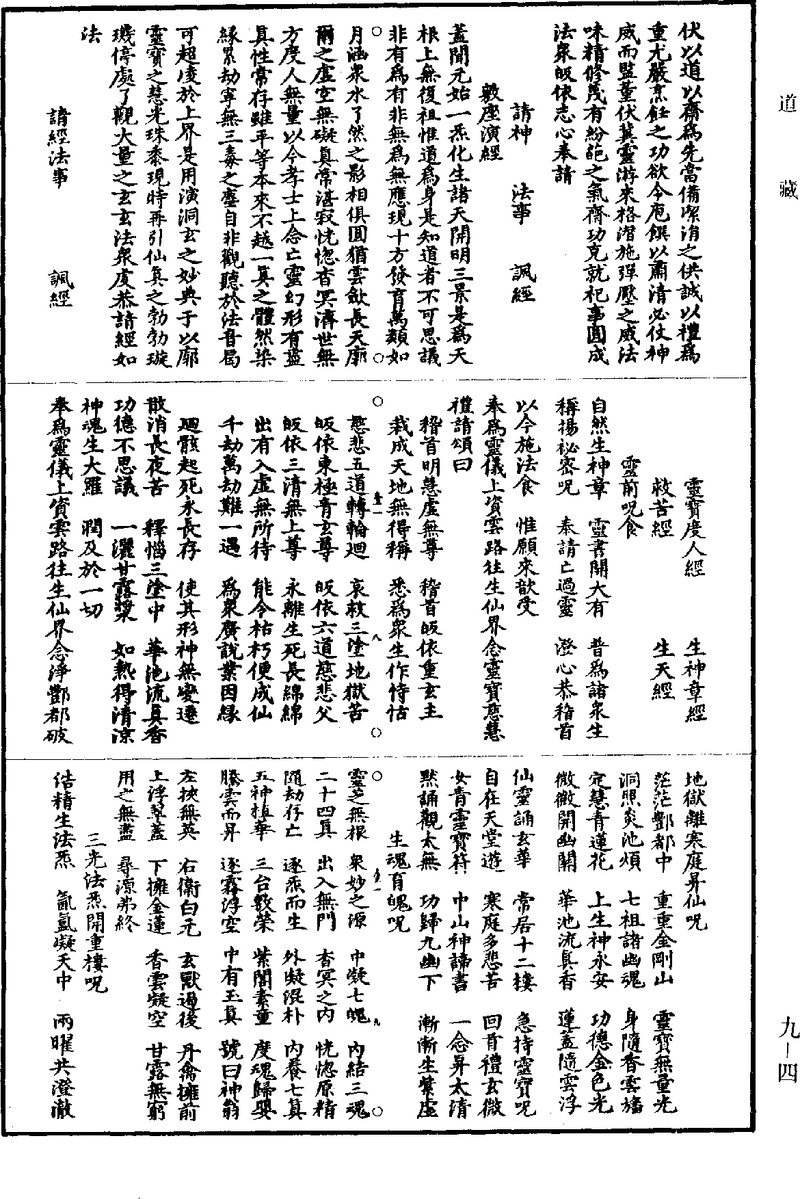 道藏
伏以道以齋為先當備潔涓之供誠以禮為
重尤嚴烹飪之功欲令庖饌以肅清必仗神
威而監董伏冀靈游來格潛施彈壓之威法
味精修茂有紛葩之氣齋功克就祀事圓成
法衆皈依志心奉請
請神 法事 諷經
敷座演經
蓋聞元始一炁化生諸天開明三景是為天
根上無復祖惟道為身是知道者不可思議
非有為有非無為無應現十方發育萬類如
月涵衆水了然之影相俱圓猶雲斂長天廓
爾之虛空無礙真常湛寂恍惚杳冥濟世無
方度人無量以今孝士上念亡靈幻形有盡
真性常存雖平等本來不越一真之體然染
緣累劫寧無三毒之塵自非觀聽於法音曷
可超度於上界是用演洞玄之妙典于以廓
靈寶之慧光珠黍現時再引仙真之勃勃璇
璣停處了觀大量之玄玄法衆虔恭請經如
法
請經法事 諷經
靈寶度人經 生神章經
救苦經 生天經
靈前呪食
自然生神章 靈書開大有 普為諸衆生
稱揚祕密呪 奏請亡過靈 澄心恭稽首
以今施法食 惟願來歆受
奉為靈儀上資雲路往生仙界念靈寶慈慧
禮請頌曰
稽首明慧虛無尊 稽首皈依重玄主
栽成天地無得稱 悉為衆生作恃怙
慈悲五道轉輪迴 哀救三塗地獄苦
皈依東極青玄尊 皈依六道慈悲父
皈依三清無上尊 永離生死長綿綿
出有入虛無所待 能令枯朽便成仙
千劫萬劫難一遇 為衆廣說業因緣
迴骸起死永長存 使其形神無變遷
散消長夜苦 釋惱三塗中 華池流真香
功德不思議 一灑甘露漿 如熱得清涼
神魂生大羅 潤及於一切
奉為靈儀上資雲路往生仙界念淨酆都破
地獄離寒庭昇仙呪
茫茫酆都中 重重金剛山 靈寶無量光
洞照炎池煩 七祖諸幽魂 身隨香雲旛
定慧青蓮花 上生神永安 功德金色光
微微開幽關 華池流真香 蓮蓋隨雲浮
仙靈誦玄華 常居十二樓 急持靈寶呪
自在天堂遊 寒庭多悲苦 回首禮玄微
女青靈寶符 中山神諦書 一念昇太清
默誦觀太無 功歸九幽下 漸漸生紫虛
生魂育魄呪
靈芝無根 衆妙之源 中凝七魄 內結三魂
二十四真 出入無門 杳冥之內 恍惚原精
隨劫存亡 逐炁而生 外凝混朴 內養七真
五神植華 三台敷榮 紫闇素童 度魂歸嬰
騰雲而昇 逐霧浮空 中有玉真 號曰神翁
左挾無英 右衛白元 玄獸過後 丹禽擁前
上浮翠蓋 下擁金蓮 香雲凝空 甘露無窮
用之無盡 尋源弗終
三光法炁開重樓呪
結精生法炁 氤氳凝天中 兩曜共澄澈
九－四